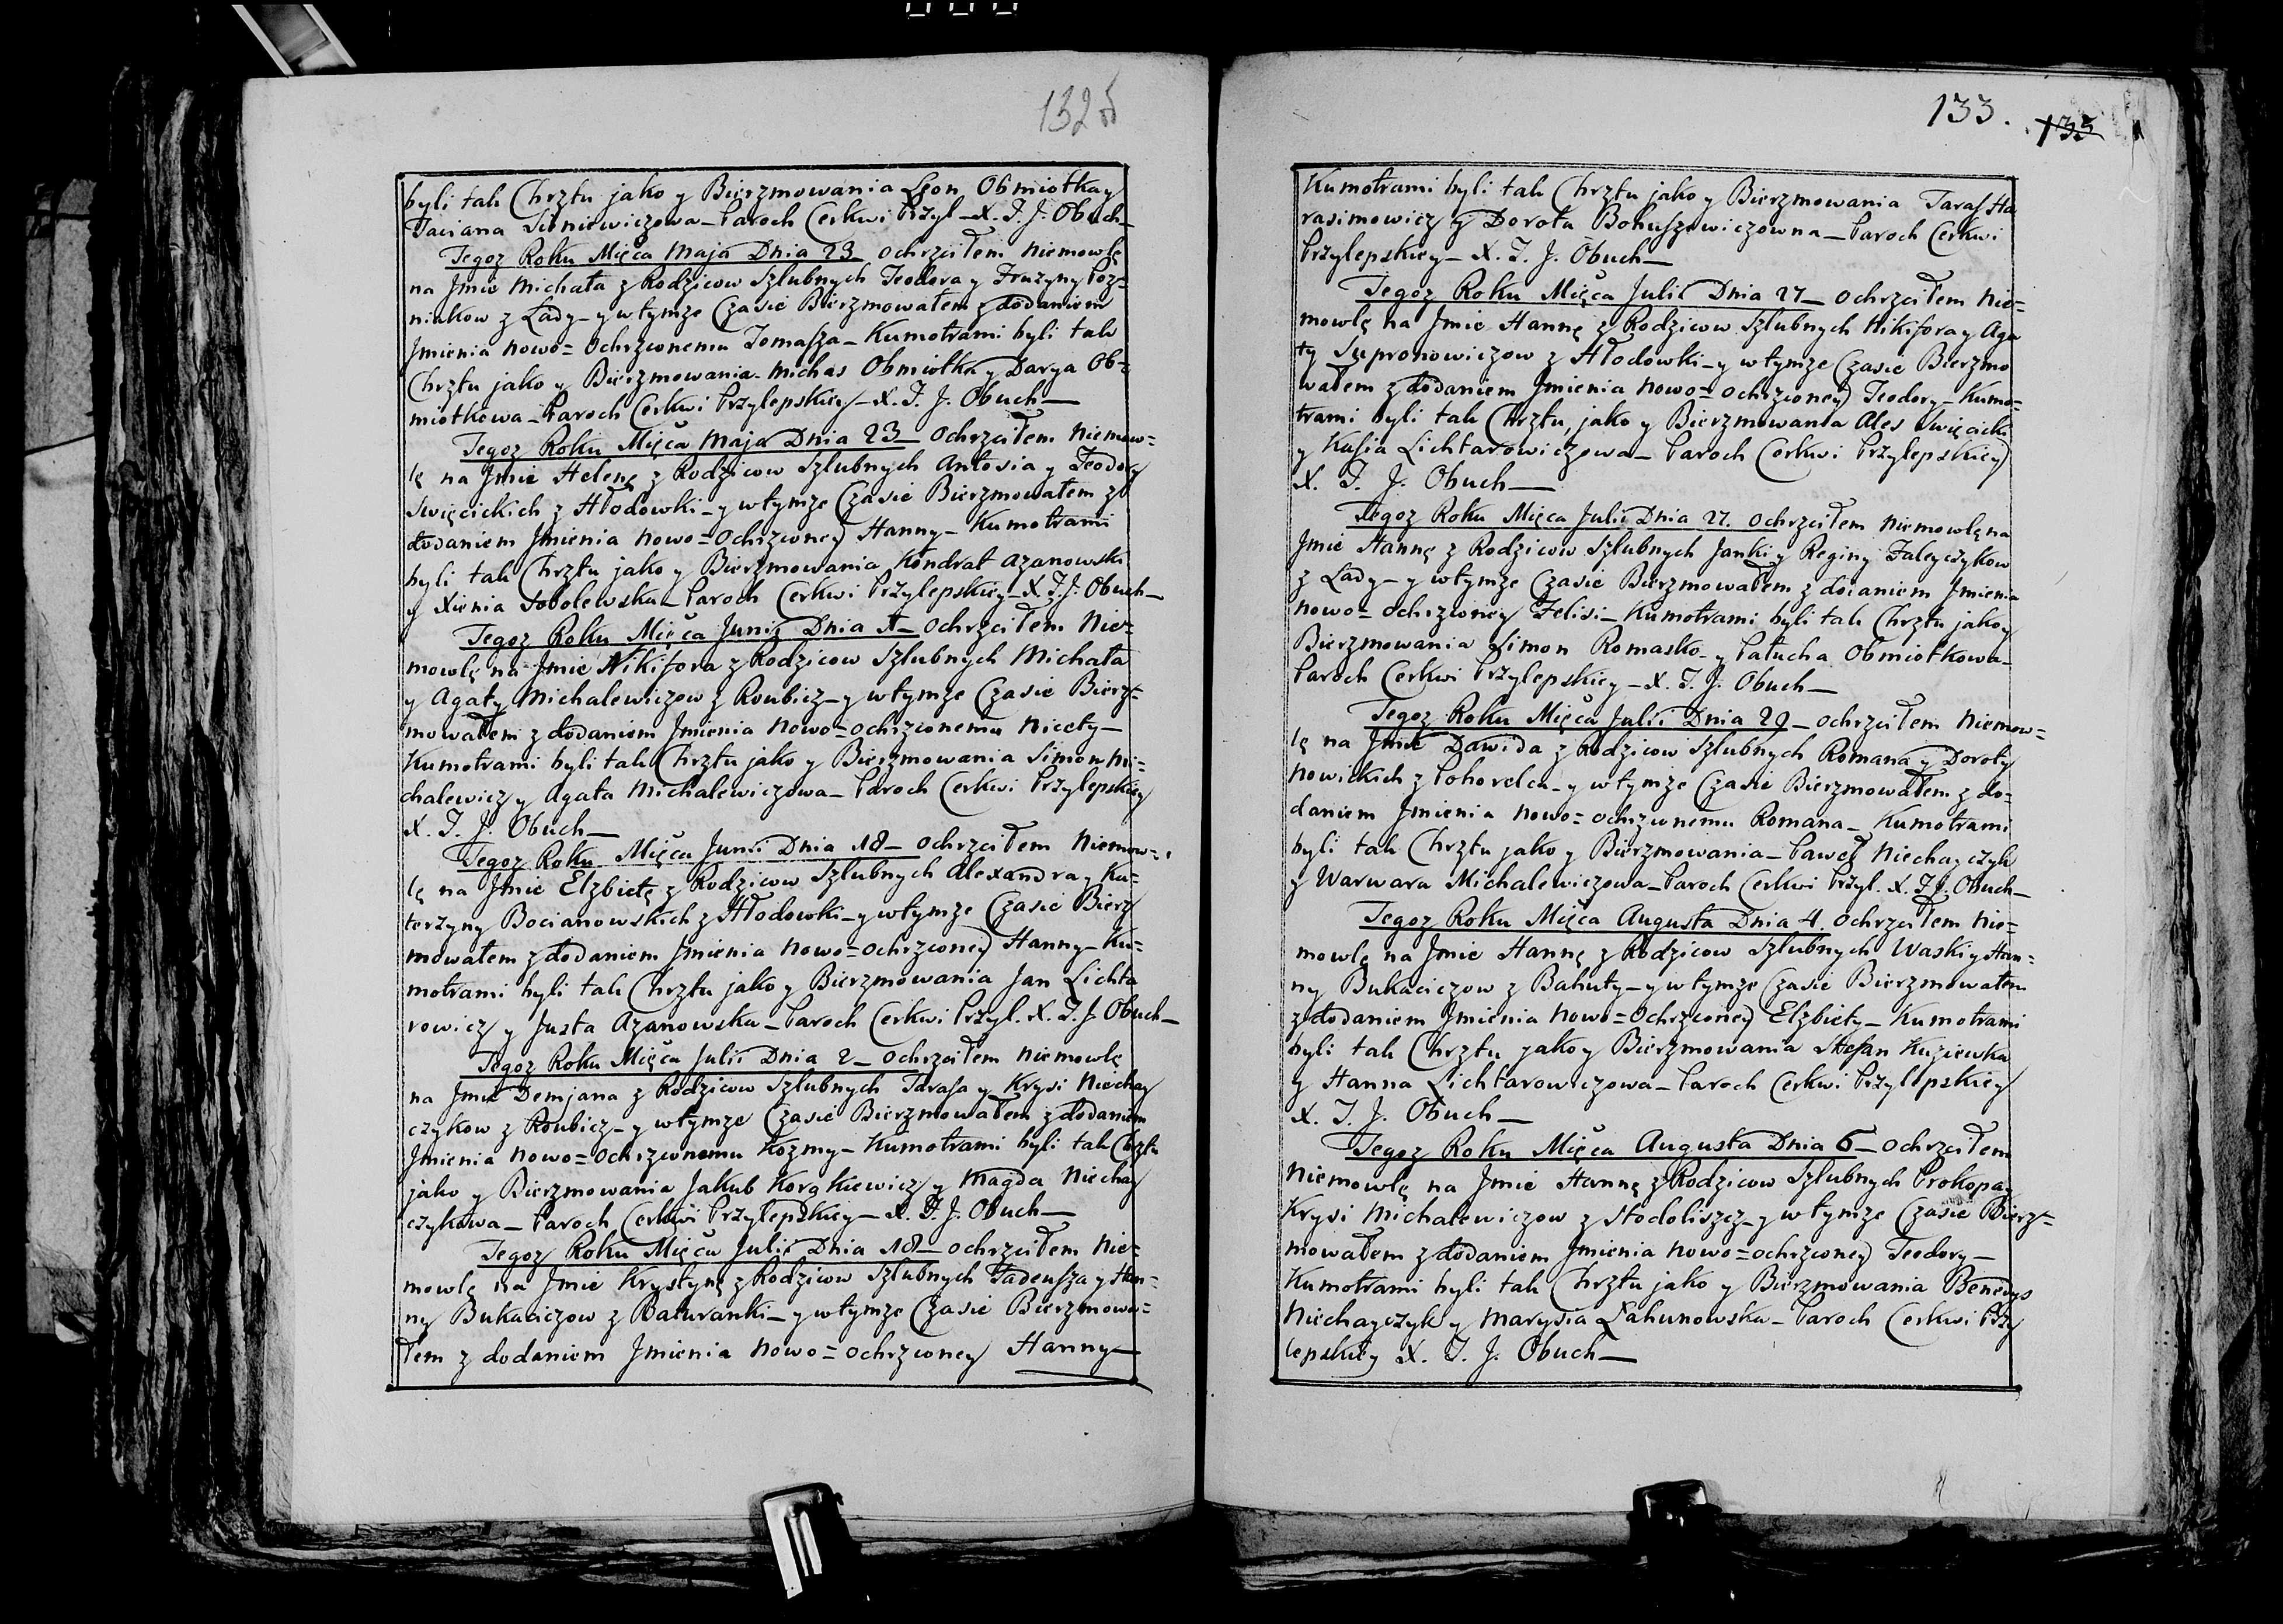 132 b
byli tak Chrztu jako y Bierzmowania Leon Obmiotka y
Taciana Sieniewiczowa – Paroch Cerkwi Przyl – X. T. J. Obuch –
Tegoz Roku Mięca Maja Dnia 23 ochrzciłem Niemowlę
na Jmie Michała z Rodzicow Szlubnych Teodora y Fruzyny Poz=
niakow z Lady – y wtymze Czasie Bierzmowałem z dodaniem
Jmienia nowo=ochrzconemu Tomasza – Kumotrami byli tak
Chrztu jako y Bierzmowania – Michas Obmiotka y Darya Ob=
miotkowa – Paroch Cerkwi Przylepskiey – X. T. J. Obuch –
Tegoz Roku Mięca Maja Dnia 23 – Ochrzciłem Niemow=
lę na Jmie Helenę z Rodzicow Szlubnych Antosia y Teodory
Swięcickich z Hłodowki – y wtymze Czasie Bierzmowałem z
dodaniem Jmienia Nowo=Ochrzconey Hanny – Kumotrami
byli tak Chrztu jako y Bierzmowania Kondrat Azanowski
y Xienia Sobolewska – Paroch Cerkwi Przylepskiey – X. T. J. Obuch –
Tegoz Roku Mięca Junii Dnia 1 – Ochrzciłem Nie=
mowlę na Jmie Nikifora z Rodzicow Szlubnych Michała
y Agaty Michalewiczow z Roubicz – y wtymze Czasie Bierz=
mowałem z dodaniem Jmienia nowo=ochrzconemu Nicety –
Kumotrami byli tak Chrztu jako y Bierzmowania Simon Mi=
chalewicz y Agata Michalewiczowa – Paroch Cerkwi Przylepskiey
X. T. J. Obuch –
Tegoz Roku Mięca Junii Dnia 18 – ochrzciłem Niemow=
lę na Jmie Elzbietę z Rodzicow Szlubnych Alexandra y Ka=
terzyny Bocianowskich z Hłodowki – y wtymze Czasie Bierz
mowałem z dodaniem Jmienia Nowo=ochrzconey Hanny – Ku=
motrami byli tak Chrztu jako y Bierzmowania Jan Lichta
rowicz y Justa Azanowska – Paroch Cerkwi Przyl. X. T. J. Obuch –
Tegoz Roku Mięca Julii Dnia 2 – Ochrzciłem Niemowlę
na Jmie Demjana z Rodzicow Szlubnych Tarasa y Krysi Niechay
czykow z Roubicz – y wtymze Czasie Bierzmowałem z dodaniem
Jmienia nowo=ochrzconemu Kozmy – Kumotrami byli tak Chrztu
jako y Bierzmowania Jakub Korgkiewicz y Magda Niechay
czykowa – Paroch Cerkwi Przylepskiey – X. T. J. Obuch –
Tegoz Roku Mięca Julii Dnia 18 – ochrzciłem Nie=
mowlę na Jmie Krystynę z Rodzicow Szlubnych Tadeusza y Han=
ny Bukaciczow z Baturanki – y wtymze Czasie Bierzmowa=
łem z dodaniem Jmienia nowo=ochrzconey Hanny –
133. 135
Kumotrami byli tak Chrztu jako y Bierzmowania Taras Ha
rasimowicz y Dorota Bohuszewiczowna – Paroch Cerkwi
Przylepskiey – X. T. J. Obuch –
Tegoz Roku Mięca Julii Dnia 27 – Ochrzciłem Nie=
mowlę na Jmie Hannę z Rodzicow Szlubnych Nikifora y Aga
ty Supronowiczow z Hłodowki – y wtymze Czasie Bierzmo
wałem z dodaniem Jmienia Nowo=ochrzconey Teodory – Kumo=
trami byli tak Chrztu, jako y Bierzmowania Ales Swięcicki
y Kasia Lichtarowiczowa – Paroch Cerkwi Przylepskiey
X. T. J. Obuch –
Tegoz Roku Mięca Julii Dnia 27. Ochrzciłem Niemowlę na
Jmie Hannę z Rodzicow Szlubnych Janki y Reginy Faleyczykow
z Lady – y wtymze Czasie Bierzmowałem z dodaniem Jmienia
nowo=ochrzconey Felisi – Kumotrami byli tak Chrztu jako y
Bierzmowania Simon Romasko – y Patucha Obmiotkowa –
Paroch Cerkwi Przylepskiey – X. T. J. Obuch –
Tegoz Roku Mięca Julii Dnia 29 – Ochrzciłem Niemow=
lę na Jmie Dawida z Rodzicow Szlubnych Romana y Doroty
Nowickich z Pohorelca – y wtymze Czasie Bierzmowałem z do=
daniem Jmienia nowo=ochrzconemu Romana – Kumotrami
byli tak Chrztu jako y Bierzmowania – Paweł Niechayczyk
y Warwara Michalewiczowa – Paroch Cerkwi Przyl. X. T. J. Obuch –
Tegoz Roku Mięca Augusta Dnia 4. Ochrzciłem Nie=
mowlę na Jmie Hannę z Rodzicow Szlubnych Waski y Han=
ny Bukaciczow z Bahuty – y wtymze Czasie Bierzmowałem
z dodaniem Jmienia Nowo=Ochrzconey Elzbiety – Kumotrami
byli tak Chrztu jako y Bierzmowania Stefan Kuziewka
y Hanna Lichtarowiczowa – Paroch Cerkwi Przylepskiey
X. T. J. Obuch –
Tegoz Roku Mięca Augusta Dnia 6 – Ochrzciłem
Niemowlę na Jmie Hannę z Rodzicow Szlubnych Prokopa y
Krysi Michalewiczow z Stodoliszcz – y wtymze Czasie Bierz=
mowałem z dodaniem Jmienia nowo=ochrzconey Teodory –
Kumotrami byli tak Chrztu jako y Bierzmowania Benedys
Niechayczyk y Marysia Lahunowska – Paroch Cerkwi Przy
lepskiey X. T. J. Obuch –